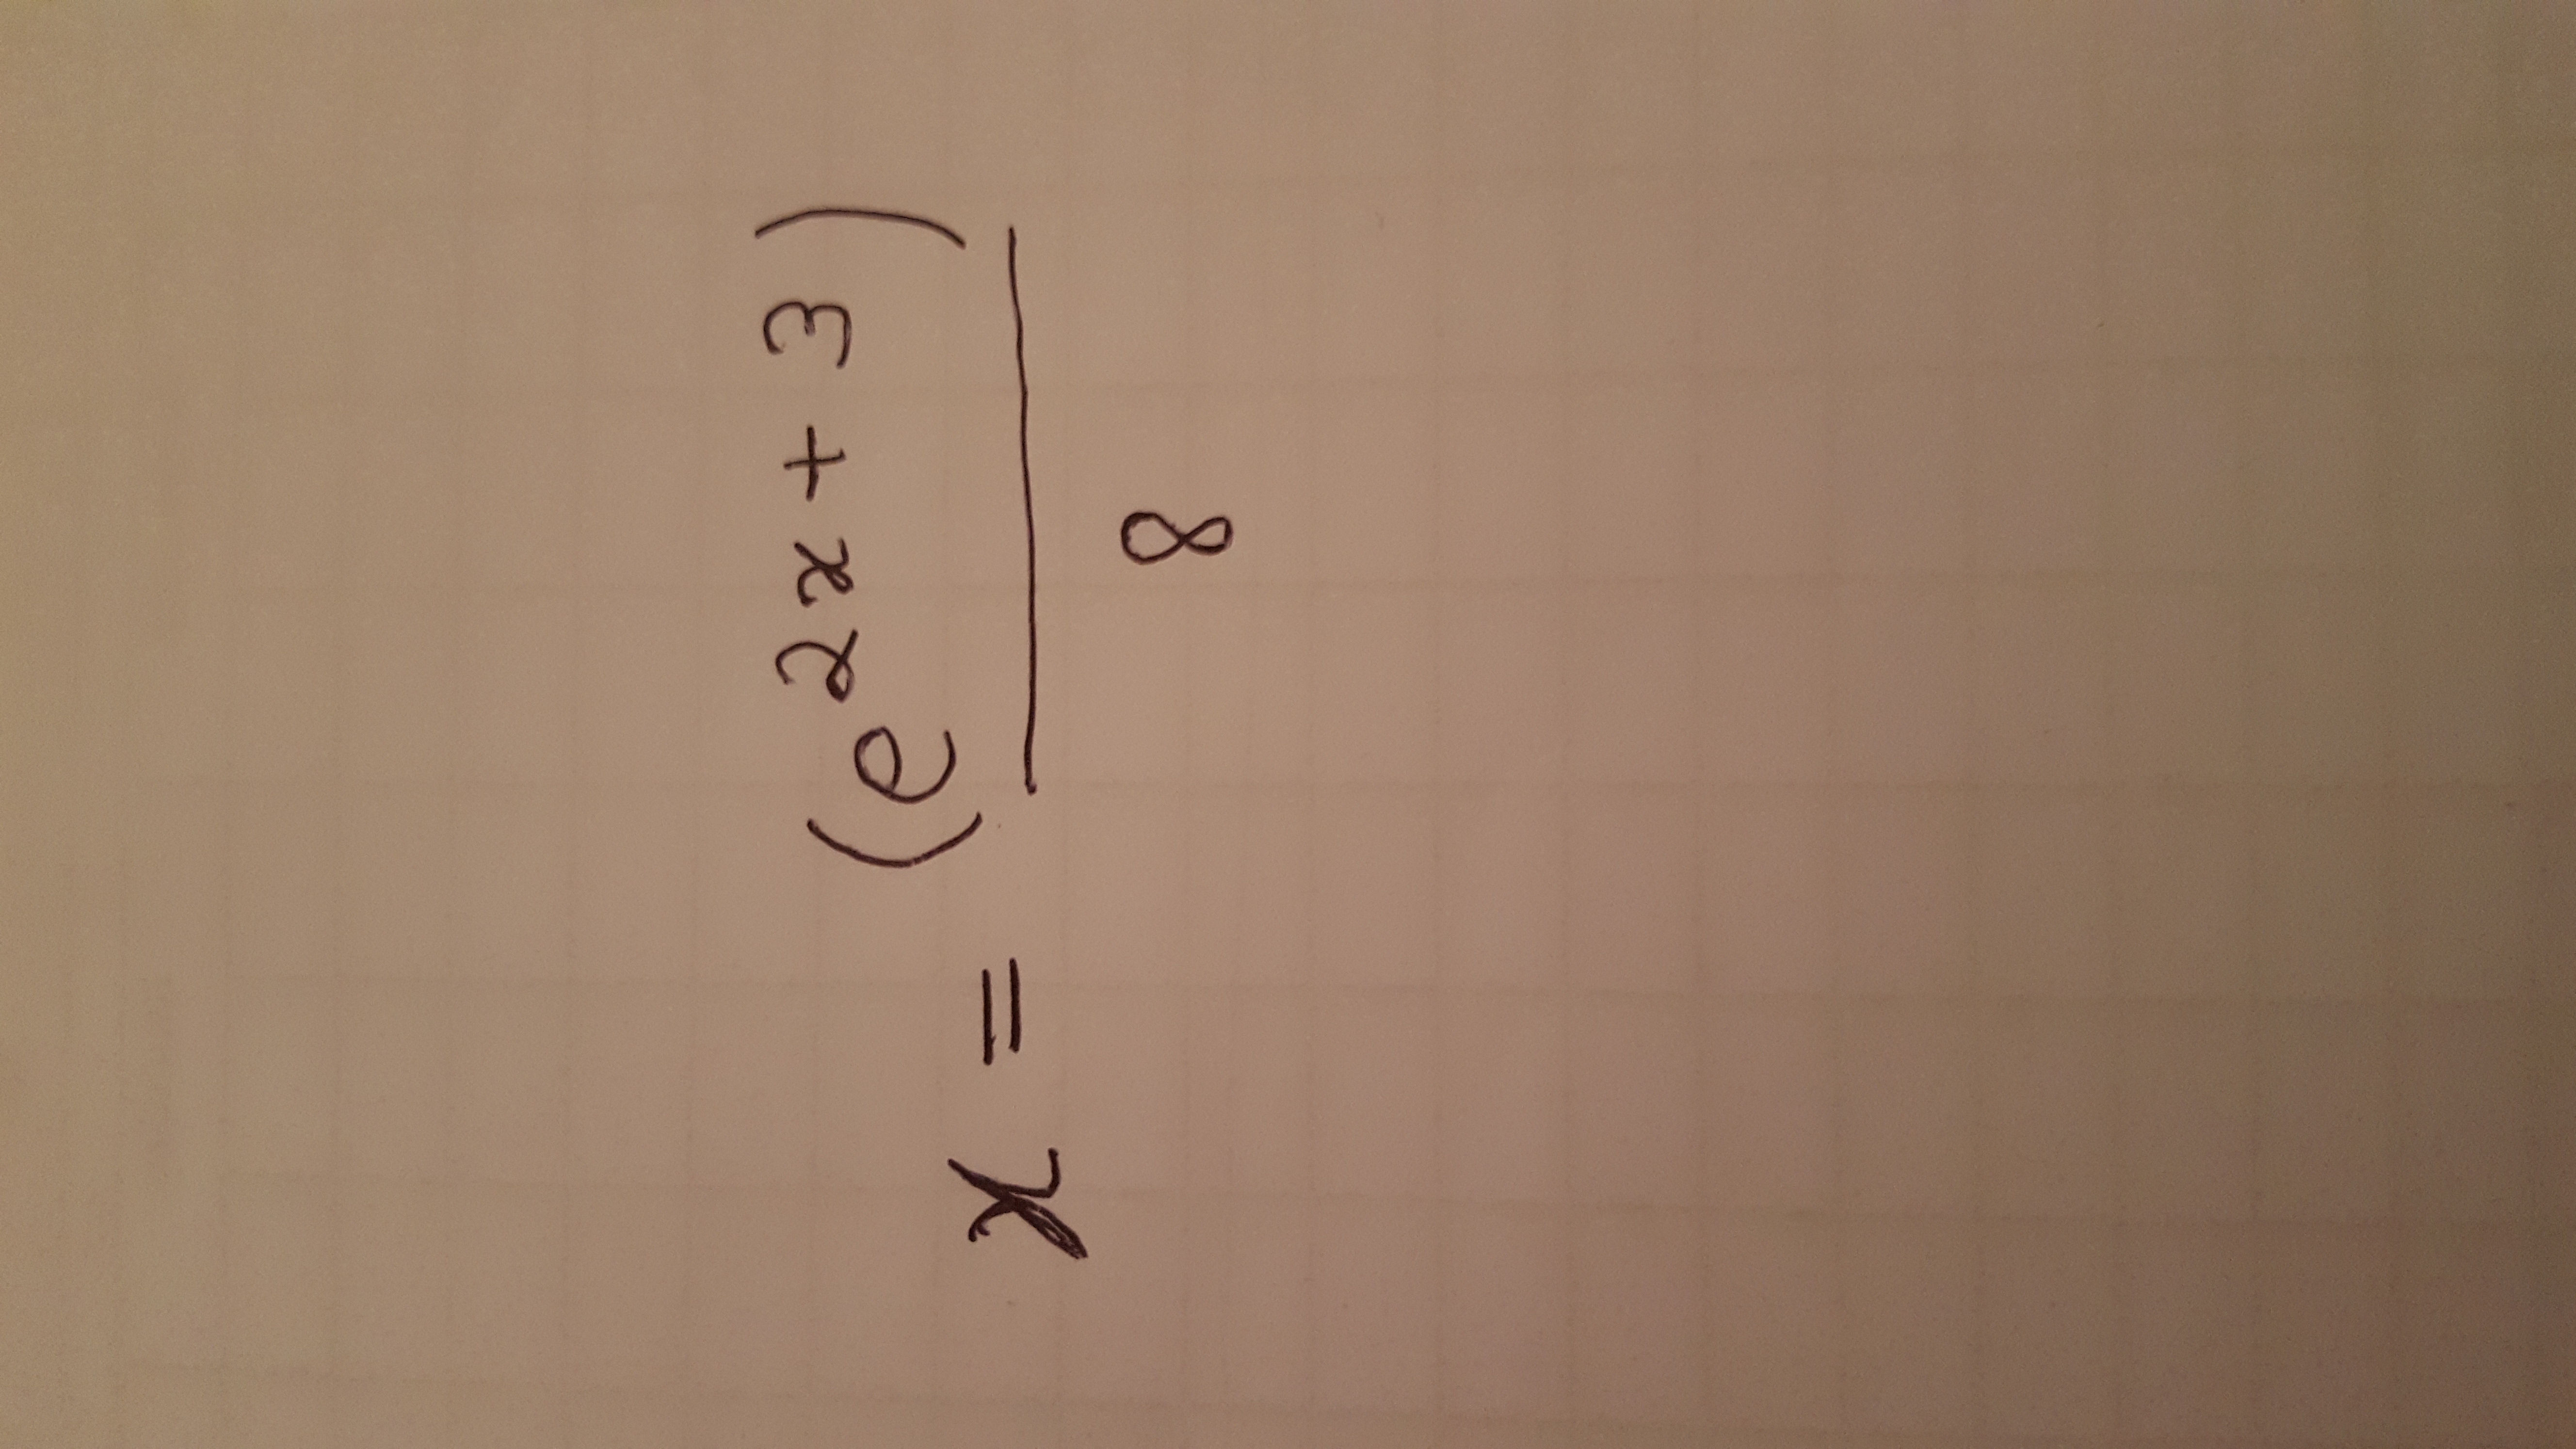 x = (e^{2x + 3}) / 8